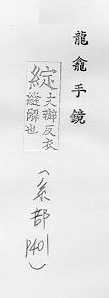 龍龕手鏡
綻丈辦反衣
縫解也
(系部 P401)